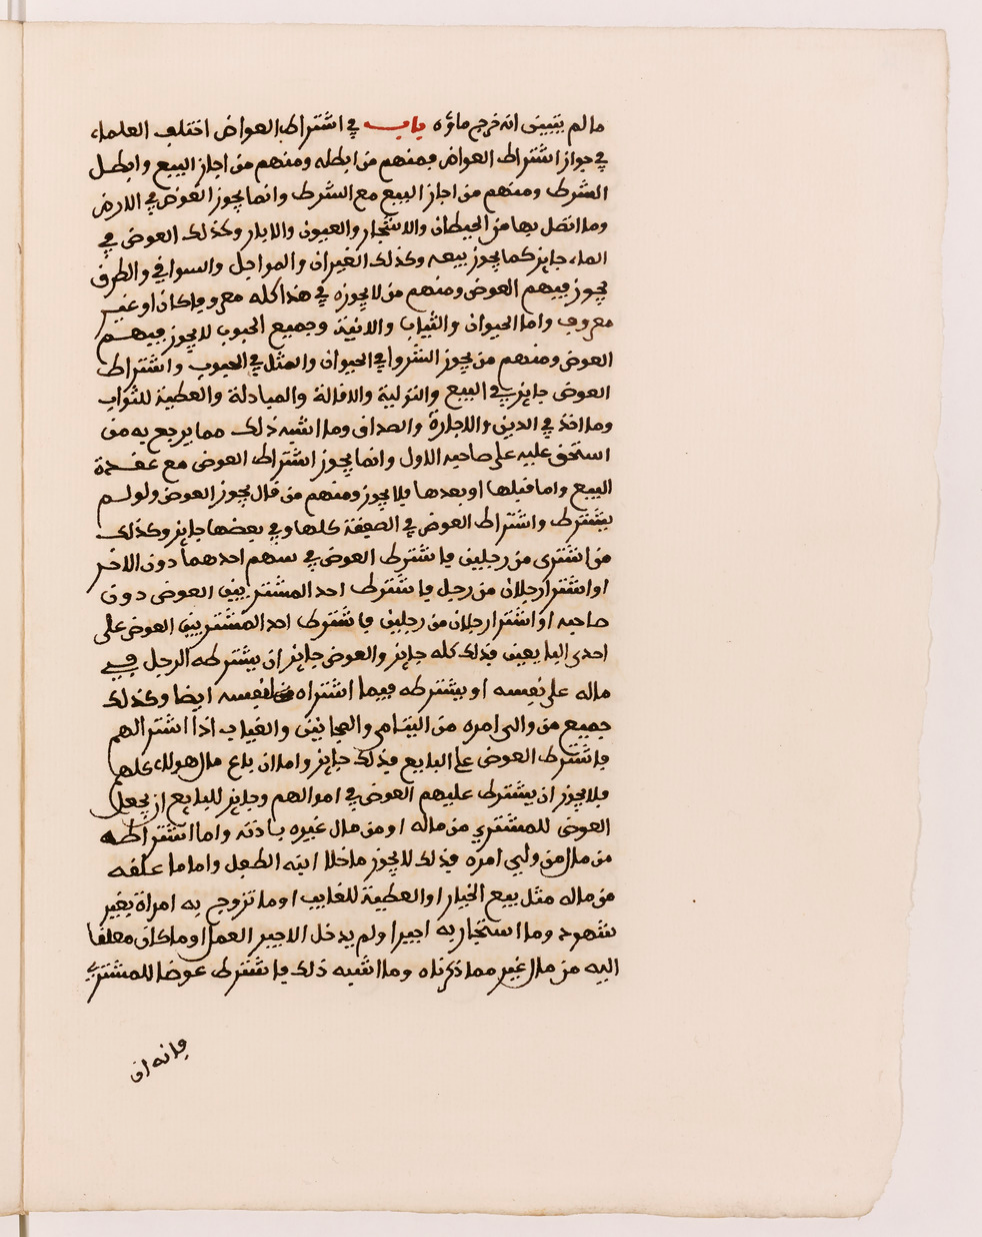 ما لم يتبين انه خرج ماؤه باب في اشتراط العواض اختلف العلماء
في جواز اشتراط العواض فمنهم من ابطله ومنهم من اجاز البيع وابطل
الشرط ومنهم من اجاز البيع مع الشرط وانما يجوز العوض في الارض
وما اتصل بها من الحيطان والاشجار والعيون والابار وكذلك العوض في
الماء جايز كما يجوز بيعه وكذلك الغيران والمواجل والسواقي والطرق
يجوز فيهم العوض ومنهم من لا يجوزه في هذا كله معروفا كان او غير
معروف واما الحيوان والثياب والانية وجميع الحبوب لا يجوز فيهم
العوض ومنهم من يجوز الشروا في الحيوان والمثل في الحبوب واشتراط
العوض جايز في البيع والتولية والاقالة والمبادلة والعطية للثواب
وما اخذ في الدين والاجارة والصداق وما اشبه ذلك مما يرجع به من
استحق عليه على صاحبه الاول وانما يجوز اشتراط العوض مع عقدة
البيع واما قبلها او بعدها فلا يجوز ومنهم من قال يجوز العوض ولو لم
يشترط واشتراط العوض في الصفقة كلها وفي بعضها جايز وكذلك
من اشترى من رجلين فاشترط العوض في سهم احدهما دون الاخر
او اشترا رجلان من رجل فاشترط احد المشتريين العوض دون
صاحبه او اشترا رجلان من رجلين فاشترط احد المشتريين العوض على
احدى البايعين فذلك كله جايز والعوض جايز ان يشترطه الرجل في
ماله على نفسه او يشترطه فيما اشتراه لنفسه ايضا وكذلك
جميع من والى امره من اليتامى والمجانين والغياب اذا اشترا لهم
فاشترط العوض على البايع فذلك جايز واما ان باع مال هولاء كلهم
فلا يجوز ان يشترط عليهم العوض في اموالهم وجايز للبايع ان يجعل
العوض للمشتري من ماله او من مال غيره باذنه واما اشتراطه
من مال من ولي امره فذلك لا يجوز ما خلا ابنه الطفل واما ما علقه
من ماله مثل بيع الخيار او العطية للغايب او ما تزوج به امراة بغير
شهود وما استجار به اجيرا ولم يدخل الاجير العمل او ما كان معلقا
اليه من مال غير مما ذكرناه وما اشبه ذلك فاشترط عوضا للمشتري
فانه ان